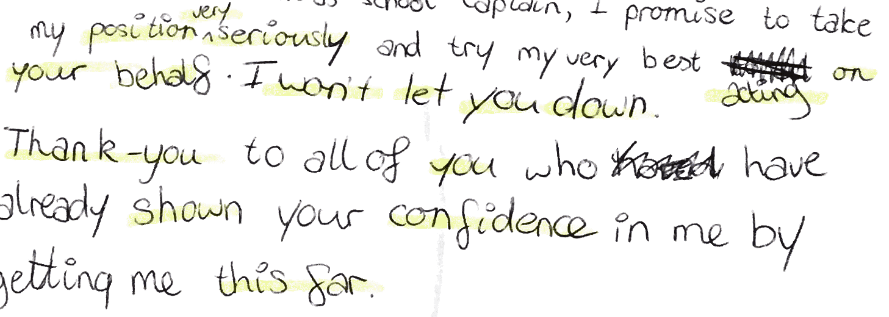 school captain, I promise to take
my position very seriously and try my very best on
your behalf. I won't let you down. acting
Thank-you to all of you who have
already shown your confidence in me by
getting me this far.